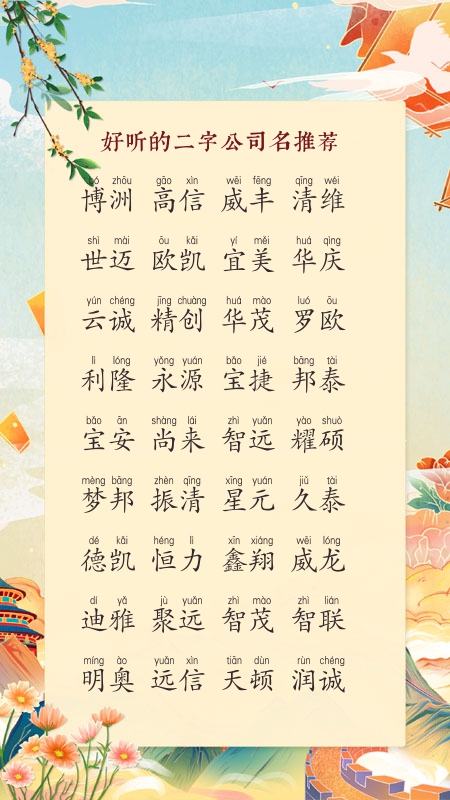 好听的二字公司名推荐
bó zhōu gāo xìn wēi fēng qīng wéi
博洲 高信 威丰 清维
shì mài ōu kǎi yí měi huá qìng
世迈 欧凯 宜美 华庆
yún chéng jīng chuàng huá mào luó ōu
云诚 精创 华茂 罗欧
lì lóng yǒng yuán bǎo jié bāng tài
利隆 永源 宝捷 邦泰
bǎo ān shàng lái zhì yuǎn yào shuò
宝安 尚来 智远 耀硕
mèng bāng zhèn qīng xīng yuán jiǔ tài
梦邦 振清 星元 久泰
dé kǎi héng lì xīn xiáng wēi lóng
德凯 恒力 鑫翔 威龙
dí yǎ jù yuǎn zhì mào zhì lián
迪雅 聚远 智茂 智联
míng ào yuǎn xìn tiān dùn rùn chéng
明奥 远信 天顿 润诚